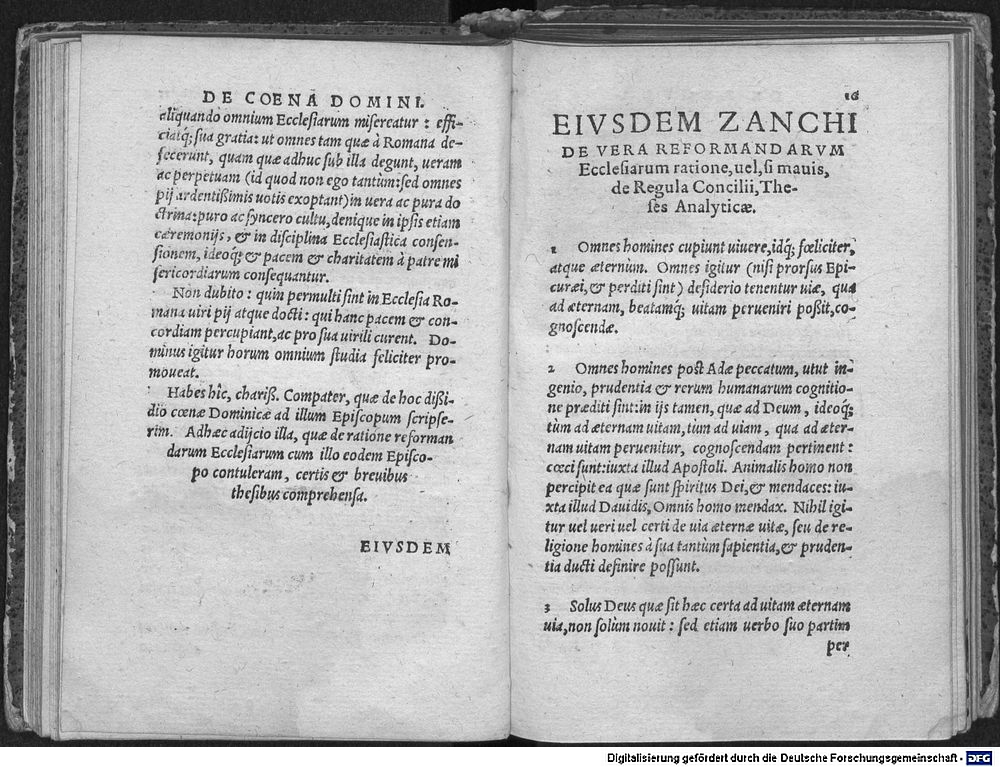 DE COENA DOMINI.
aliquando omnium Ecclesiarum misereatur : effi-
ciatq́; sua gratia: ut omnes tam quæ à Romana de-
fecerunt, quam quæ adhuc sub illa degunt, ueram
ac perpetuam (id quod non ego tantùm: sed omnes
pij ardentißimis uotis exoptant) in uera ac pura do
ctrina: puro ac syncero cultu, denique in ipsis etiam
cæremonijs, & in disciplina Ecclesiastica consen-
sionem, ideoq́; & pacem & charitatem à patre mi
sericordiarum consequantur.
Non dubito : quin permulti sint in Ecclesia Ro-
mana uiri pij atque docti : qui hanc pacem & con-
cordiam percupiant, ac pro sua uirili curent. Do-
minus igitur horum omnium studia feliciter pro-
moueat.
Habes hîc, chariß. Compater, quæ de hoc dißi-
dio cœnæ Dominicæ ad illum Episcopum scripse-
rim. Adhæc adijcio illa, quæ de ratione reforman
darum Ecclesiarum cum illo eodem Episco-
po contuleram, certis & breuibus
thesibus comprehensa.
EIVSDEM
16
EIVSDEM ZANCHI
DE VERA REFORMANDARVM
Ecclesiarum ratione, uel, si mauis,
de Regula Concilii, The-
ses Analyticæ.
1 Omnes homines cupiunt uiuere, idq́; fœliciter,
atque æternum. Omnes igitur (nisi prorsus Epi-
curæi, & perditi sint) desiderio tenentur uiæ, qua
ad æternam, beatamq́; uitam perueniri poßit, co-
gnoscendæ.
2 Omnes homines post Adæ peccatum, utut in-
genio, prudentia & rerum humanarum cognitio-
ne præditi sint: in ijs tamen, quæ ad Deum, ideoq́;
tùm ad æternam uitam, tùm ad uiam, qua ad æter-
nam uitam peruenitur, cognoscendam pertinent :
cœci sunt: iuxta illud Apostoli. Animalis homo non
percipit ea quæ sunt spiritus Dei, & mendaces: iu-
xta illud Dauidis, Omnis homo mendax. Nihil igi-
tur uel ueri uel certi de uia æternæ uitæ, seu de re-
ligione homines à sua tantùm sapientia, & pruden-
tia ducti definire possunt.
3 Solus Deus quæ sit hæc certa ad uitam æternam
uia, non solùm nouit : sed etiam uerbo suo partim
per
Digitalisierung gefördert durch die Deutsche Forschungsgemeinschaft - DFG